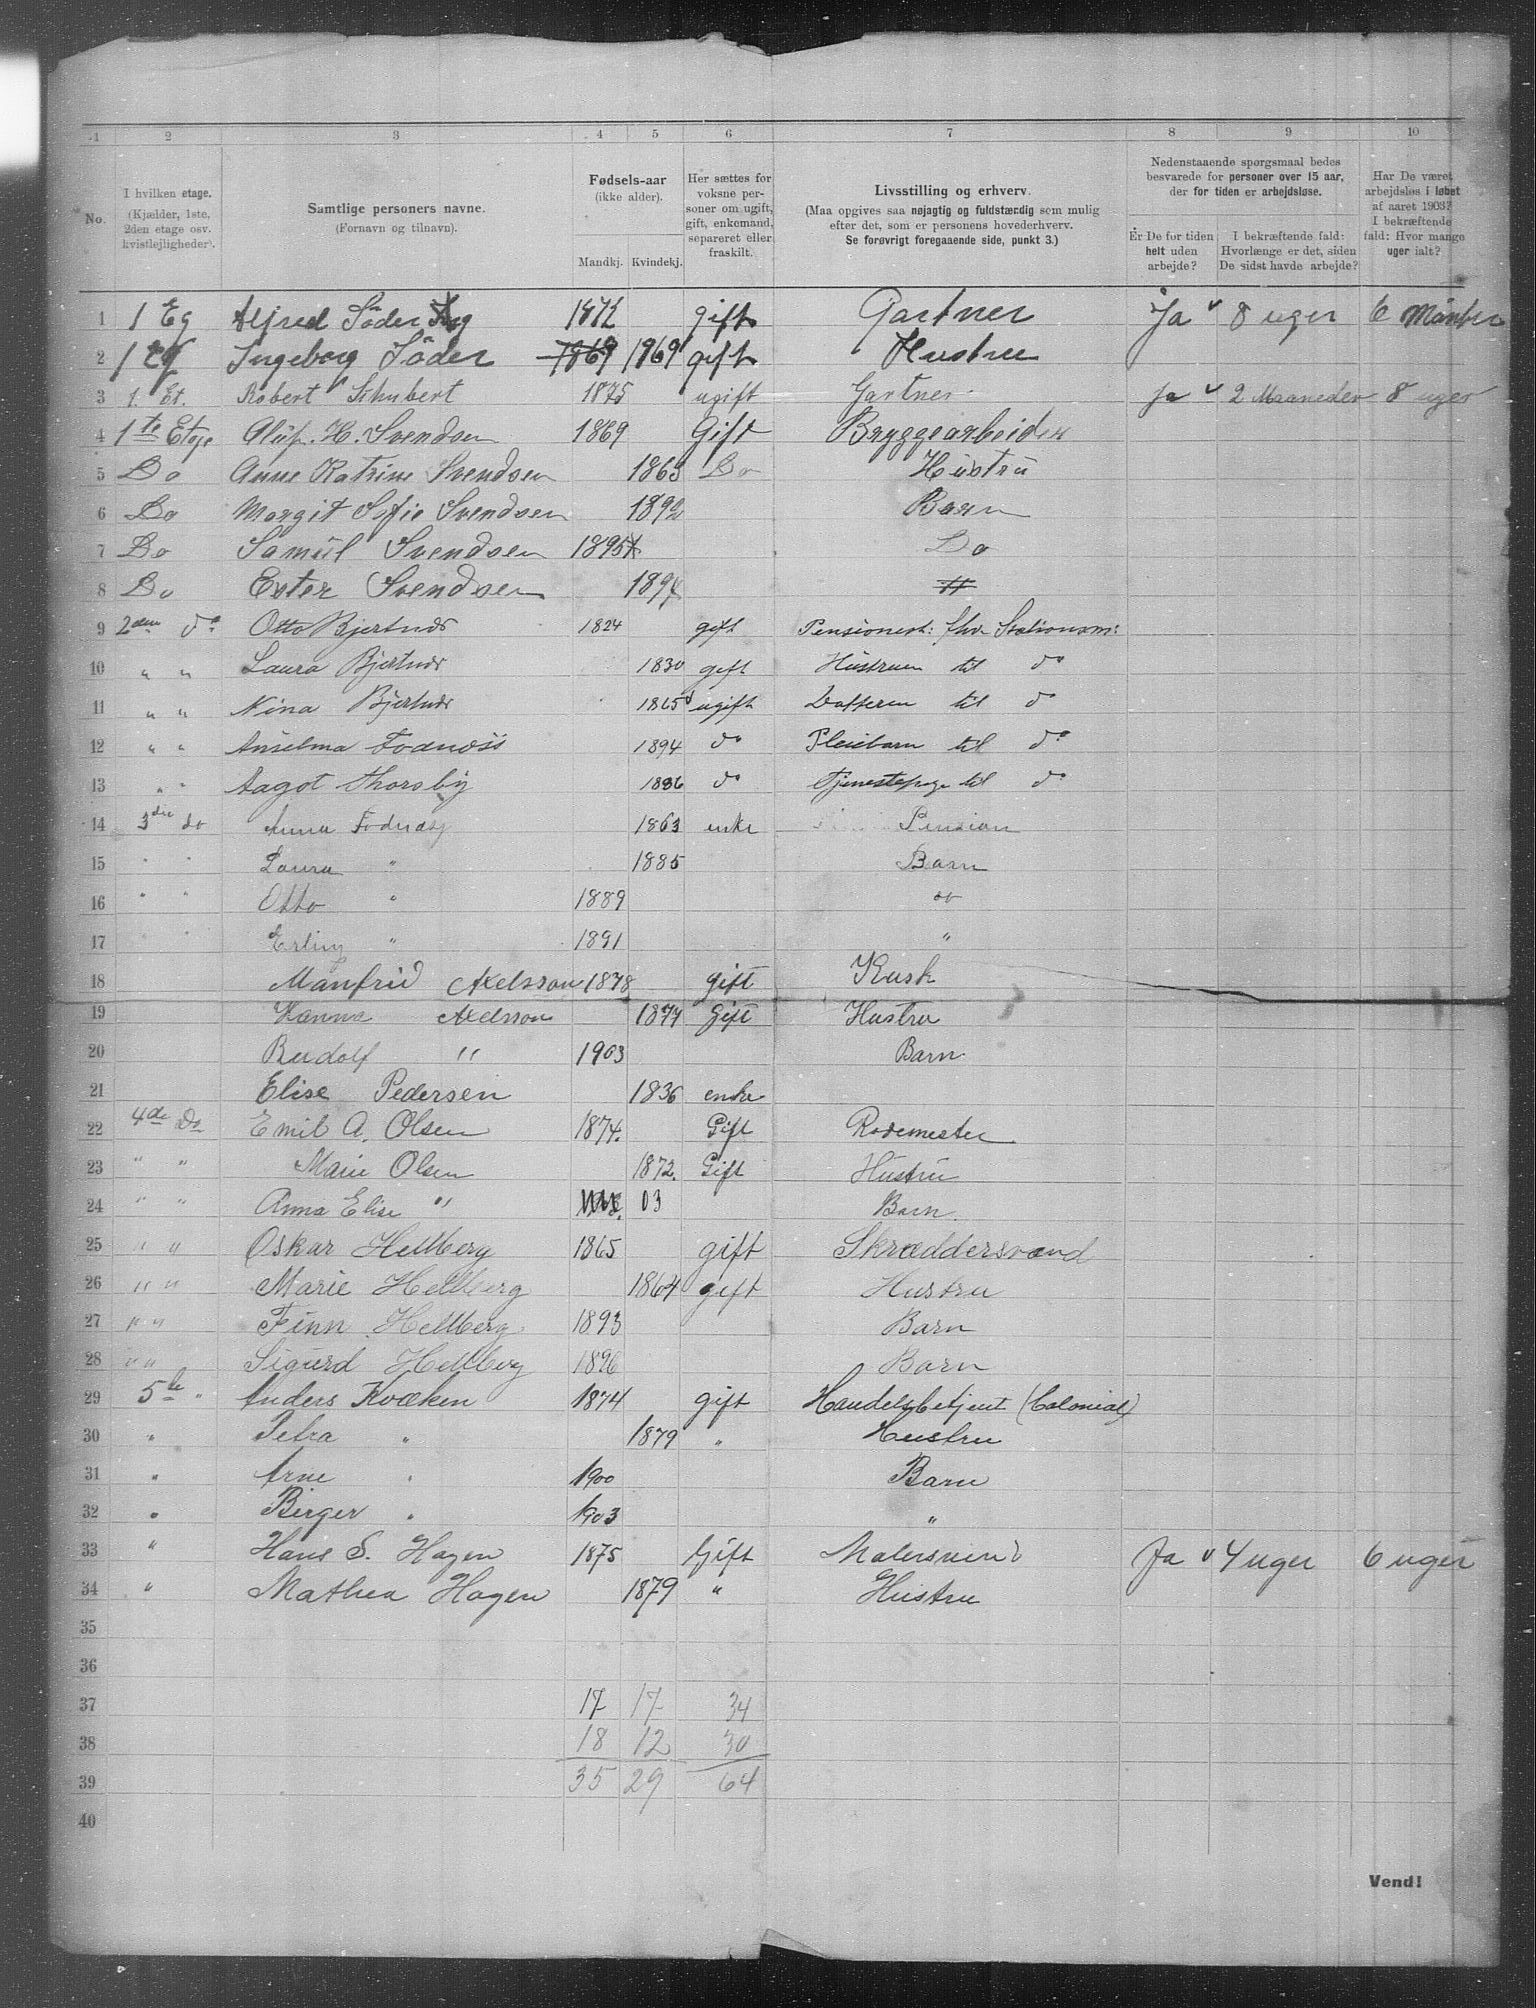 1 2 3 4 5 6 7 8 9 10
No. I hvilken etage. (Kjælder, 1ste, 2den etage osv. kvistlejligheder). Samtlige personers navne. (Fornavn og tilnavn). Fødsels-aar (ikke alder). Mandkj. Kvindekj. Her sættes for voksne personer om ugift, gift, enkemand, separeret eller fraskilt. Livsstilling og erhverv. (Maa opgives saa nøjagtig og fuldstændig som mulig efter det, som er personens hovederhverv. Se forøvrigt foregaaende side, punkt 3.) Nedenstaaende spørgsmaal bedes besvarede for personer over 15 aar, der for tiden er arbejdsløse. Er De for tiden helt uden arbejde? I bekræftende fald: Hvorlænge er det, siden De sidst havde arbejde? Har De været arbejdsløs i løbet af aaret 1903? I bekræftende fald: Hvor mange uger ialt?
1 1 Eg Alfred Söder 1872 gift Gartner Ja 8 uger 6 Månter
2 1 Eg Ingeborg Söder 1869 1969 gift Hustru
3 1. Et. Robert Schubert 1875 ugift Gartner Ja 2 Maaneder 8 uger
4 1te Etage Oluf. H. Svendsen 1869 Gift Bryggearbeider
5 Do Anne Katrine Svendsen 1863 Do Hustru
6 Do Margit Sofie Svendsen 1892 Barn
7 Do Samuel Svendsen 1895 Do
8 Do Ester Svendsen 1897 "
9 2den do Otto Bjertnæs 1824 gift Pensionist: fhv. Stationsm:
10 " " Laura Bjertnæs 1830 gift Hustruen til do
11 " " Nina Bjertnæs 1865 ugift Datteren til do
12 " " Anselma Fodnæss 1894 do Pleiebarn til do
13 " " Aagot Thorsby 1886 do Tjenestepige til do
14 3die do Anna Fodnæss 1863 enke Pension
15 " " Laura " 1885 Barn
16 " " Otto " 1889 do
17 " " Erling " 1891 "
18 Manfrid Axelsson 1878 gift Kusk
19 Hanna Axelsson 1877 Gift Hustru
20 Rudolf " 1903 Barn
21 Elise Pedersen 1836 enke
22 4de Do Emil A. Olsen 1874. Gift Rodemester
23 " " Marie Olsen 1872. Gift Hustru
24 " " Anna Elise " 03 Barn.
25 " " Oskar Hellberg 1865 gift Skræddersvend
26 " " Marie Hellberg 1864 gift Hustru
27 " " Finn Hellberg 1893 Barn
28 " " Sigurd Hellberg 1896 Barn
29 5te " Anders Kvæken 1874 gift Handelsbetjent (Colonial)
30 " Petra " 1879 " Hustru
31 " Arne " 1900 Barn
32 " Birger " 1903 "
33 " Hans S. Hagen 1875 Gift Malersvend Ja 4 uger 6 uger
34 " Mathea Hagen 1879 " Hustru
35
36
37 17 17 34
38 18 12 30
39 35 29 64
40
Vend!